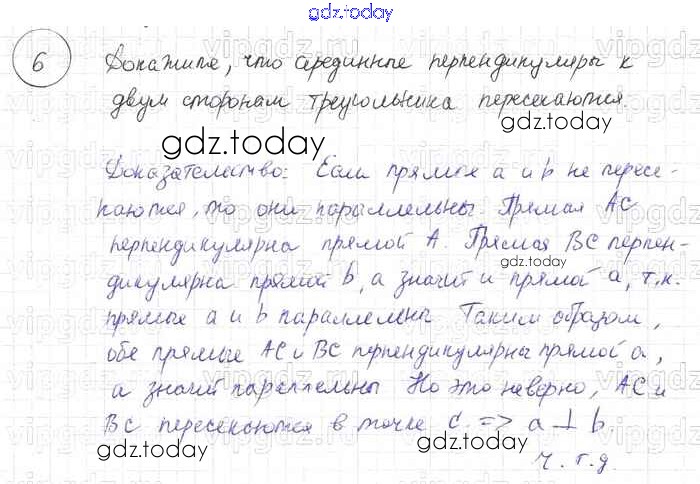 gdz.today
6 Докажите, что серединные перпендикуляры к
двум сторонам треугольника пересекаются.
gdz.today
gdz.today
Доказательство: Если прямые a и b не пересе-
каются, то они параллельны. Прямая AC
перпендикулярна прямой A. Прямая BC перпен-
gdz.today
дикулярна прямой b, а значит и прямой a, т.к.
прямые a и b параллельны Таким образом,
обе прямые AC и BC перпендикулярны прямой a,
а значит параллельны Но это неверно, AC и
BC пересекаются в точке C. => a ⊥ b.
gdz.today
gdz.today
ч.т.д.